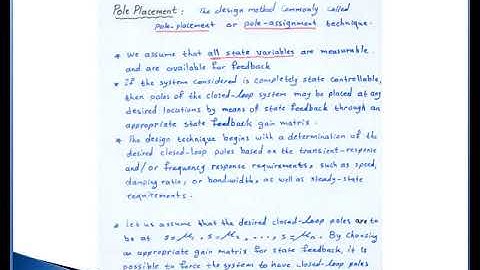 Pole Placement: The design method commonly called
pole-placement or pole-assignment technique.
* We assume that all state variables are measurable
and are available for feedback
* If the system considered is completely state controllable,
then poles of the closed-loop system may be placed at any
desired locations by means of state feedback through an
appropriate state feedback gain matrix.
* The design technique begins with a determination of the
desired closed-loop poles based on the transient-response
and/or frequency response requirements, such as speed,
damping ratio, or bandwidth, as well as steady-state
requirements.
* Let us assume that the desired closed-loop poles are to
be at s=μ₁, s=μ₂, ...., s=μₙ. By choosing
an appropriate gain matrix for state feedback, it is
possible to force the system to have closed-loop poles